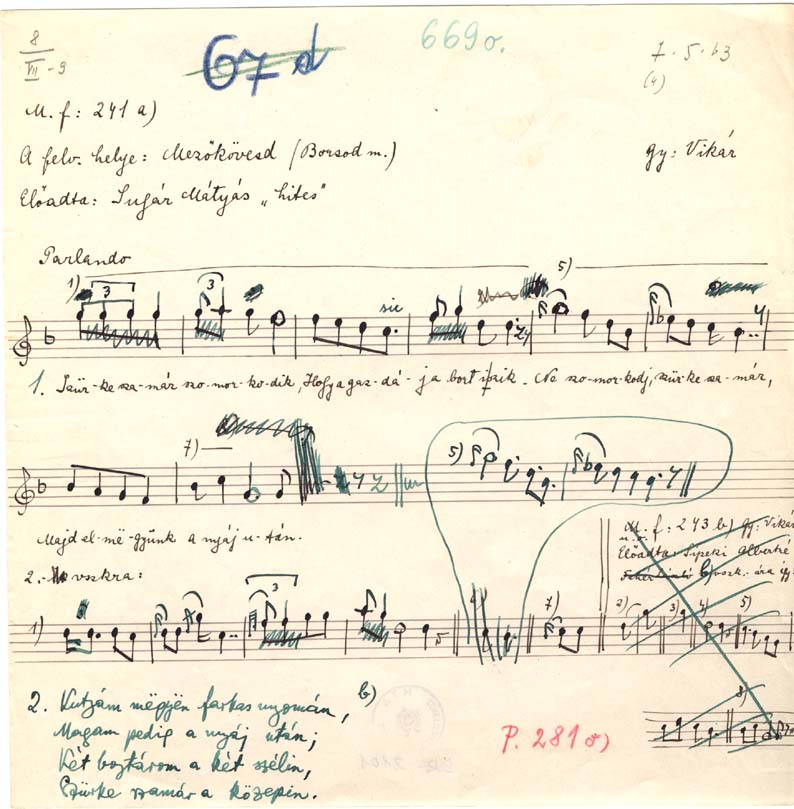 8
VII-9
67 d
669o.
7.5.63
(4)
M. f: 241 a)
A felv. helye: Mezőkövesd (Borsod m.)
gy: Vikár
Előadta: Sugár Mátyás „hites"
Parlando
1) 3
3
sic
5)
1. Szür-ke sza-már szo-mor-ko-dik, Hogy a gaz-dá-ja bort iszik. Ne szo-morkodj, szürke sza-már,
7)
5)
Majd el-më-gyünk a nyáj u-tán.
M. f: 243 b) gy: Vikár
Előadta:
2.- vszkra:
1)
3
7)
2) 3) 4) 5)
2. Kutyám mëgyën farkas nyomán,
b)
Magam pedig a nyáj után;
Két bojtárom a két szélin,
Szürke szamár a közepin.
P. 281 o)